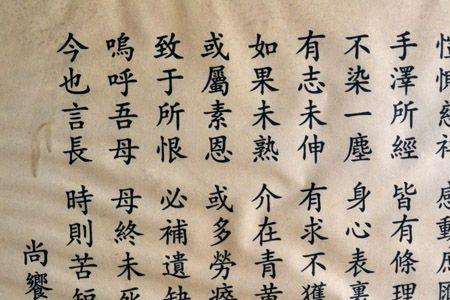 惻慈祥 感動庶
手澤所經 皆有條理
不染一塵 身心表裏
有志未伸 有求不獲
如果未熟 介在青黃
或屬素恩 或多勞瘁
致于所恨 必補遺缺
嗚呼吾母 母終未死
今也言長 時則苦短
尚饗